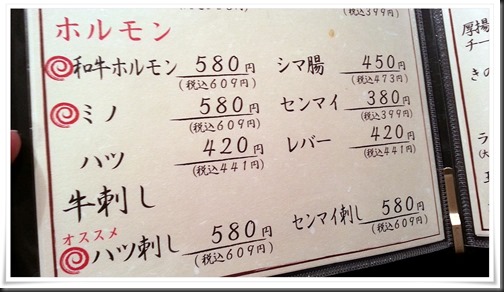 (税込399円)
ホルモン
和牛ホルモン 580円 シマ腸 450円
(税込609円) (税込473円)
ミノ 580円 センマイ 380円
(税込609円) (税込399円)
ハツ 420円 レバー 420円
(税込441円) (税込441円)
牛刺し
オススメ
ハツ刺し 580円 センマイ刺し 580円
(税込609円) (税込609円)
厚揚
チー
きの